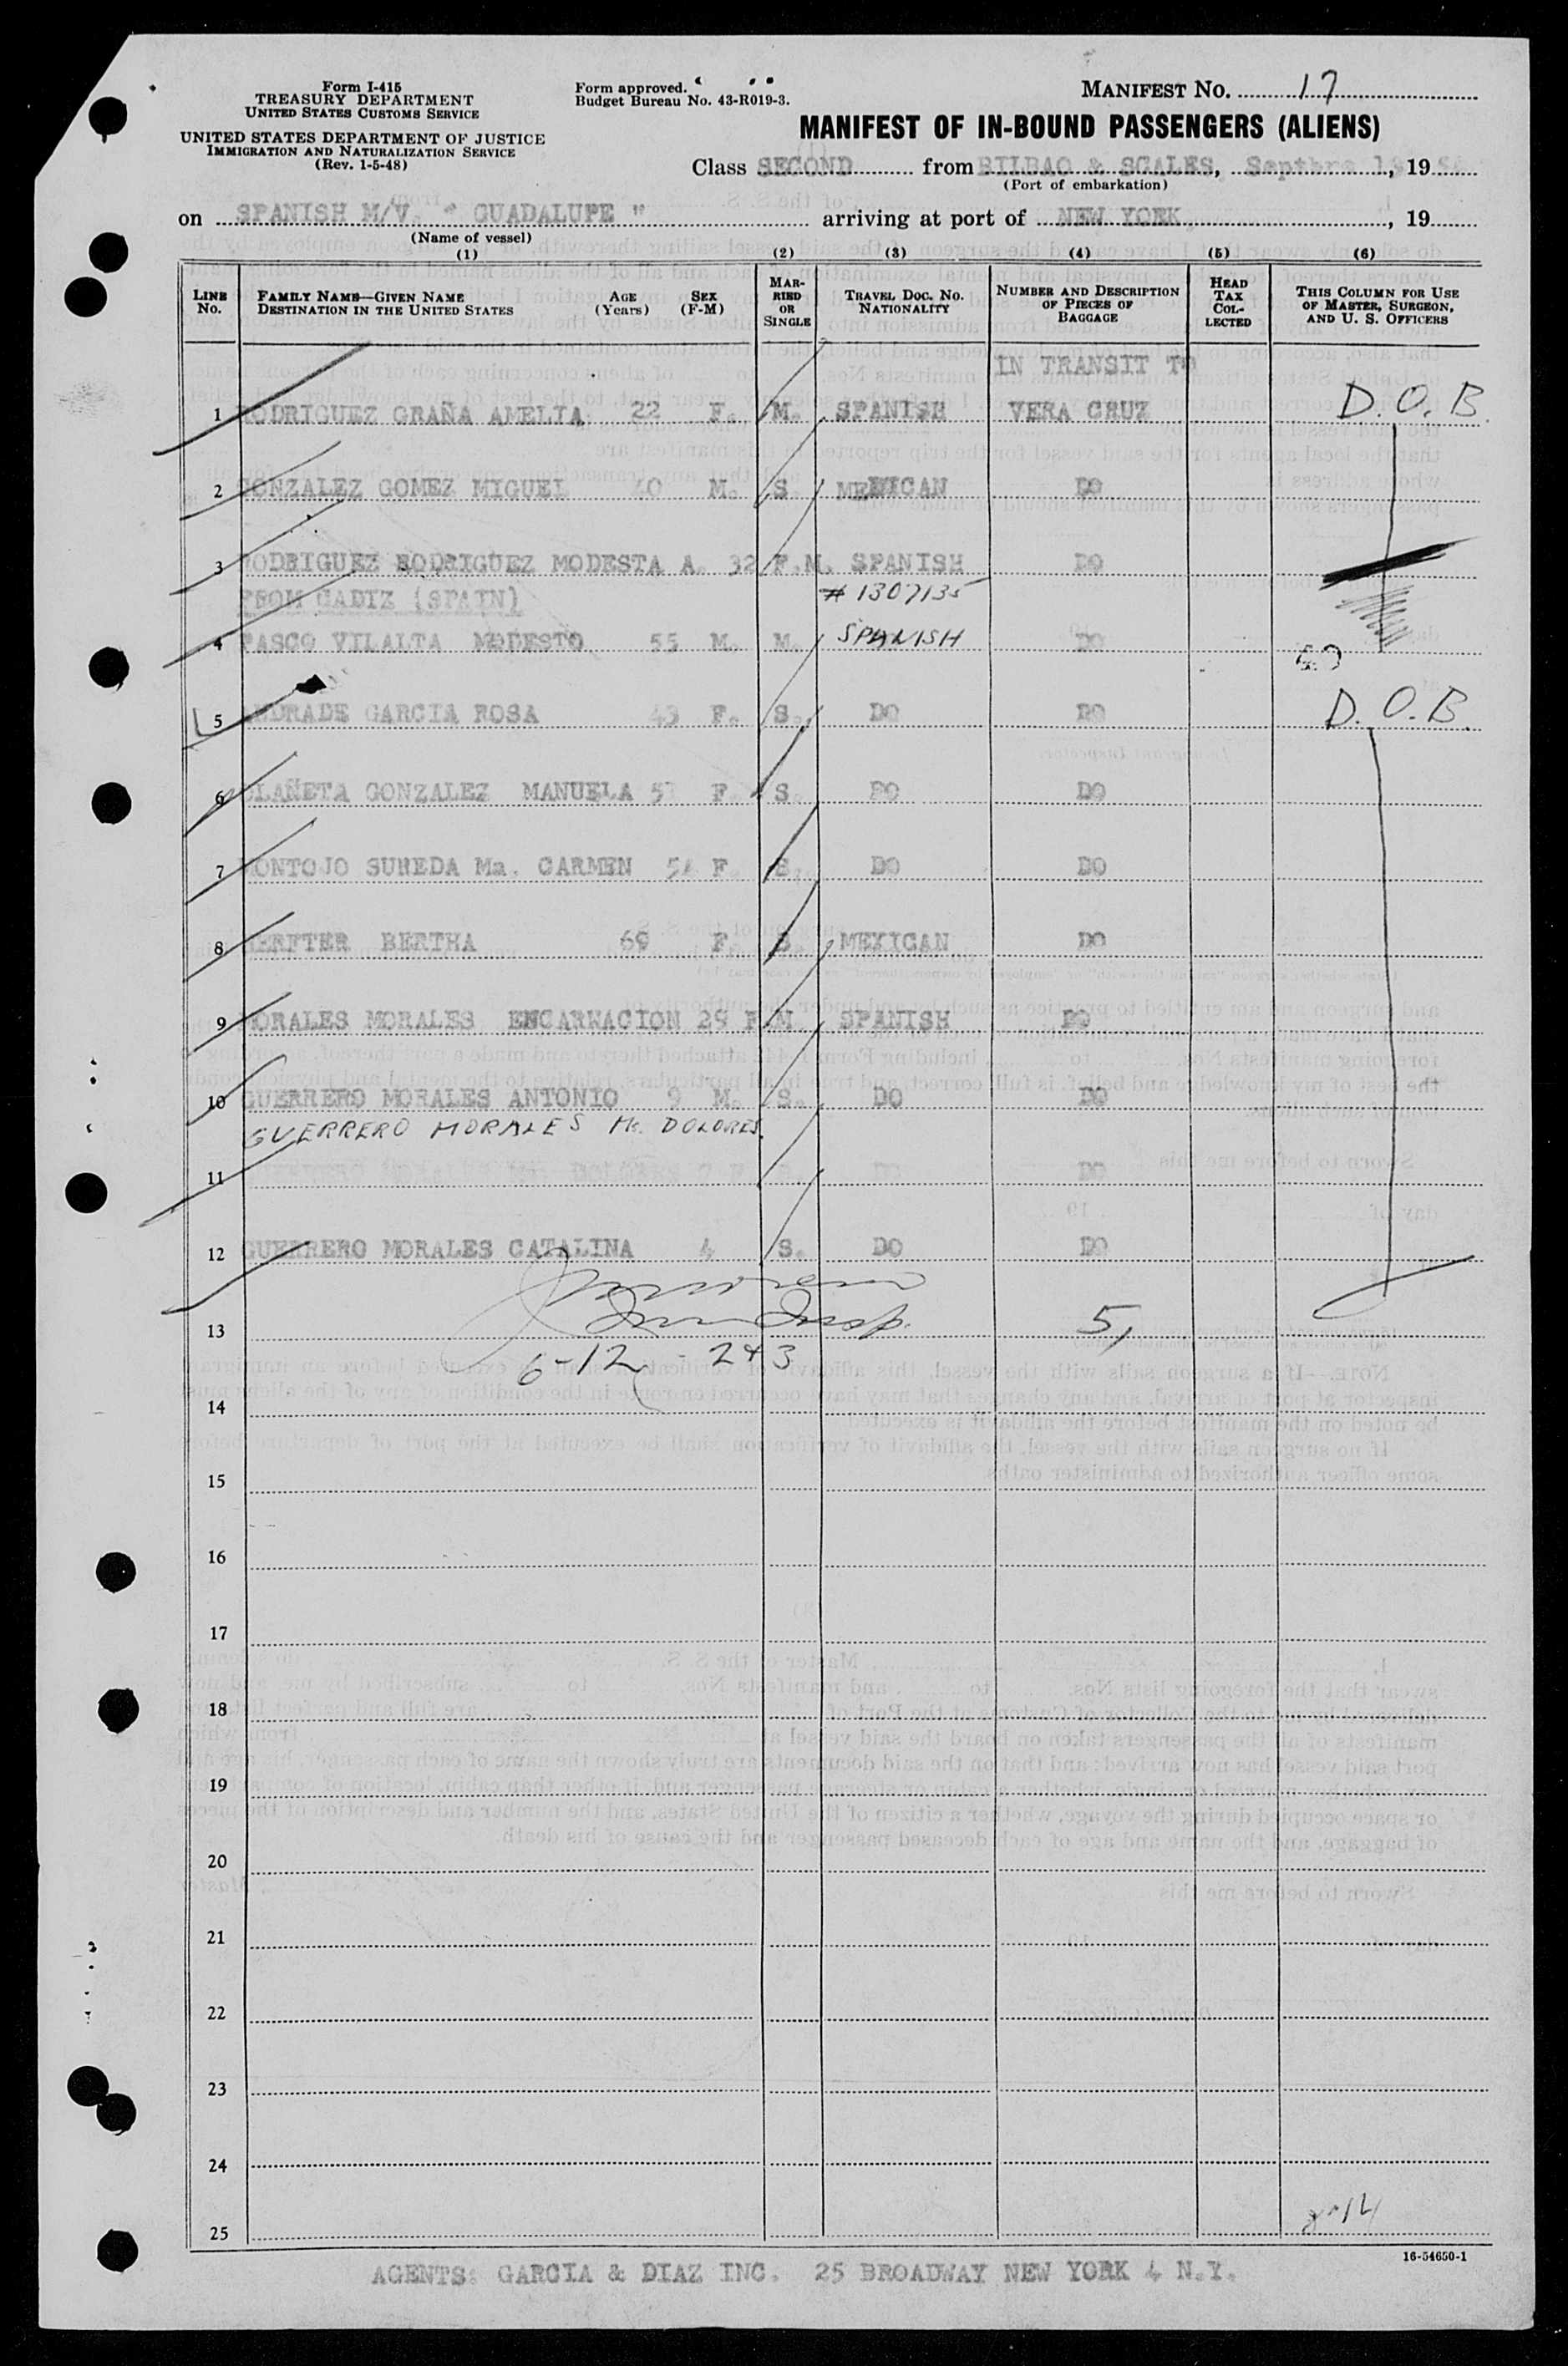 Form I-415
TREASURY DEPARTMENT
UNITED STATES CUSTOMS SERVICE
UNITED STATES DEPARTMENT OF JUSTICE
IMMIGRATION AND NATURALIZATION SERVICE
(Rev. 1-5-48)
Form approved.
Budget Bureau No. 43-R019-3.
MANIFEST NO. 17
MANIFEST OF IN-BOUND PASSENGERS (ALIENS)
Class SECOND from BILBAO & SCALES, Septbre , 19
(Port of embarkation)
on SPANISH M/V. " GUADALUPE " arriving at port of NEW YORK, , 19
(Name of vessel)
(1) (2) (3) (4) (5) (6)
LINE NO. FAMILY NAME—GIVEN NAME DESTINATION IN THE UNITED STATES AGE (Years) SEX (F-M) MARRIED OR SINGLE TRAVEL DOC. NO. NATIONALITY NUMBER AND DESCRIPTION OF PIECES OF BAGGAGE HEAD TAX COLLECTED THIS COLUMN FOR USE OF MASTER, SURGEON, AND U. S. OFFICERS
IN TRANSIT TO
1 RODRIGUEZ GRAÑA AMELIA 22 F. M. SPANISH VERA CRUZ D.O.B.
2 GONZALEZ GOMEZ MIGUEL 40 M. S. MEXICAN DO
3 RODRIGUEZ RODRIGUEZ MODESTA A. 32 F. M. SPANISH DO
FROM CADIZ (SPAIN) # 1307135
4 PASCO VILALTA MODESTO 55 M. M. SPANISH DO
5 ANDRADE GARCIA ROSA 43 F. S. DO DO D.O.B.
6 OLAÑETA GONZALEZ MANUELA F. S. DO DO
7 MONTOJO SUREDA Ma. CARMEN F. S. DO DO
8 BERTHA 69 F. S. MEXICAN DO
9 MORALES MORALES ENCARNACION 29 F. M. SPANISH DO
10 GUERRERO MORALES ANTONIO 9 M. S. DO DO
GUERRERO MORALES Ma. DOLORES.
11 GUERRERO MORALES Ma. DOLORES 7 F. S. DO DO
12 GUERRERO MORALES CATALINA 4 S. DO DO
13 5,
6-12 - 2+3
14
15
16
17
18
19
20
21
22
23
24
25
16-54650-1
AGENTS: GARCIA & DIAZ INC. 25 BROADWAY NEW YORK 4 N.Y.